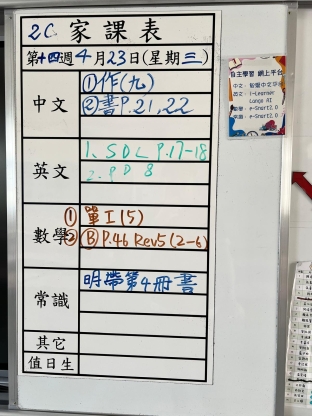 2C 家課表
第十四週4月23日(星期三)
中文
①作(九)
②書P.21,22
英文
1. SDL P.17-18
2. PD 8
數學
① 單I(5)
② Ⓑ P.46 Rev5(2-6)
常識
明帶第4冊書
其它
值日生
自主學習 網上平台
i-Learner
e-Smart2.0
e-Smart2.0